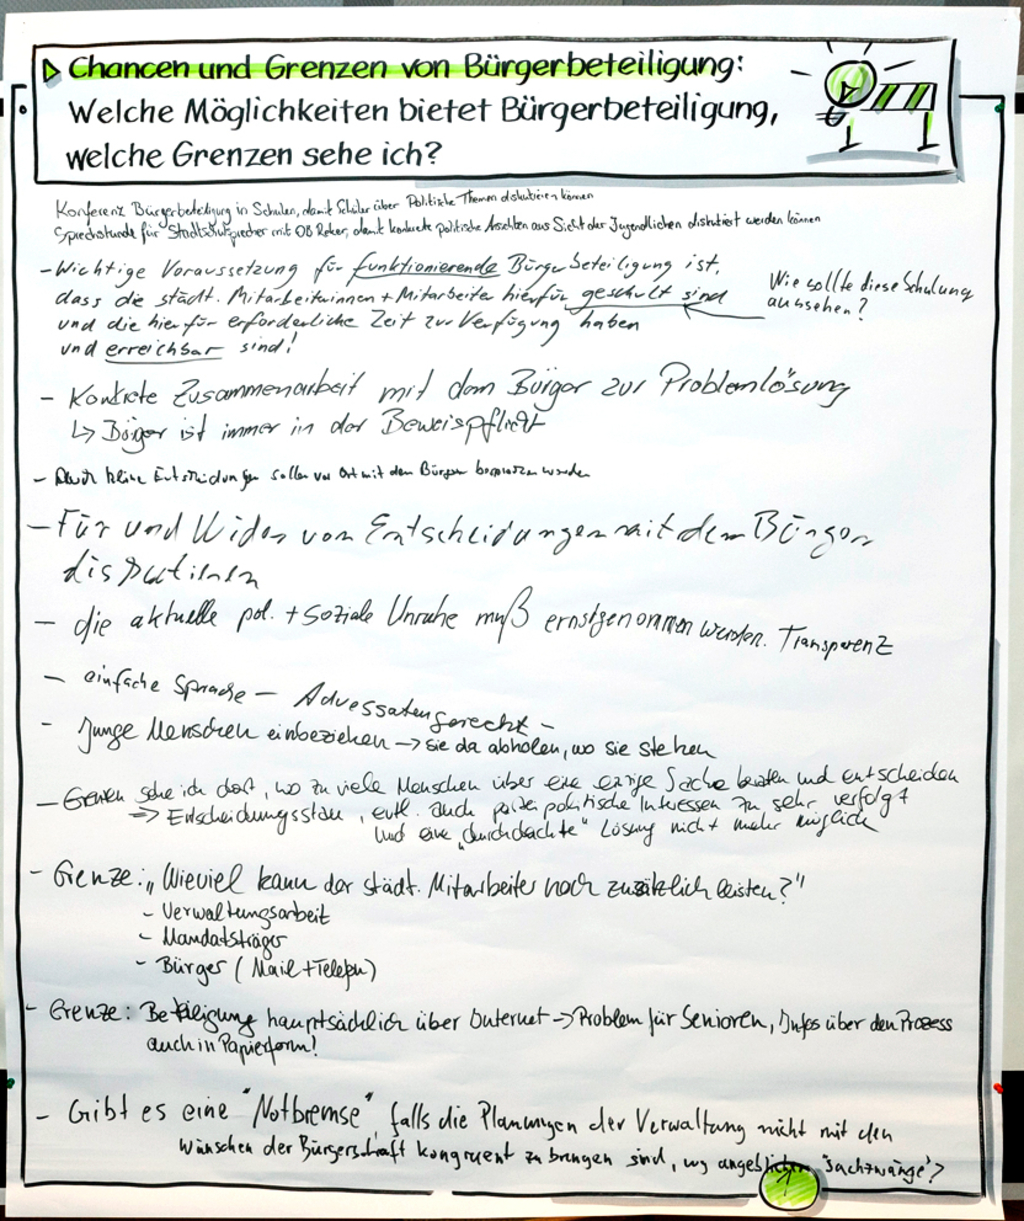 Chancen und Grenzen von Bürgerbeteiligung:
Welche Möglichkeiten bietet Bürgerbeteiligung,
welche Grenzen sehe ich?
Konferenz Bürgerbeteiligung in Schulen, damit Schüler über Politische Themen diskutieren können
Sprechstunde für Stadtschulsprecher mit OB Reker, damit konkrete politische Ansichten aus Sicht der Jugendlichen diskutiert werden können
- Wichtige Voraussetzung für funktionierende Bürgerbeteiligung ist,
dass die städt. Mitarbeiterinnen + Mitarbeiter hierfür geschult sind
und die hierfür erforderliche Zeit zur Verfügung haben
und erreichbar sind!
Wie sollte diese Schulung
aussehen?
- Konkrete Zusammenarbeit mit dem Bürger zur Problemlösung
↳ Bürger ist immer in der Beweispflicht
- Auch kleine Entscheidungen sollen vor Ort mit dem Bürger besprochen werden
- Für und Wider von Entscheidungen mit dem Bürger
disputieren
- die aktuelle pol. + soziale Unruhe muß ernstgenommen werden. Transparenz
- einfache Sprache - Adressatengerecht -
- Junge Menschen einbeziehen → sie da abholen, wo sie stehen
- Grenzen sehe ich dort, wo zu viele Menschen über eine einzige Sache beraten und entscheiden
⇒ Entscheidungsstau, evtl. auch parteipolitische Interessen zu sehr verfolgt
und eine „durchdachte" Lösung nicht mehr möglich
- Grenze: „Wieviel kann der städt. Mitarbeiter noch zusätzlich leisten?"
- Verwaltungsarbeit
- Mandatsträger
- Bürger (Mail + Telefon)
- Grenze: Beteiligung hauptsächlich über Internet → Problem für Senioren, Infos über den Prozess
auch in Papierform!
- Gibt es eine "Notbremse", falls die Planungen der Verwaltung nicht mit den
Wünschen der Bürgerschaft kongruent zu bringen sind, wg angeblichen "Sachzwänge"?